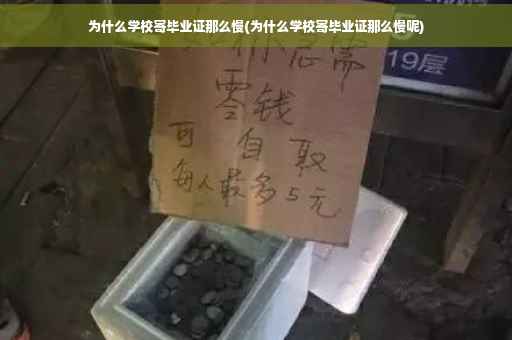 为什么学校寄毕业证那么慢(为什么学校寄毕业证那么慢呢)
你急需
19层
零钱
可自取
每人最多5元